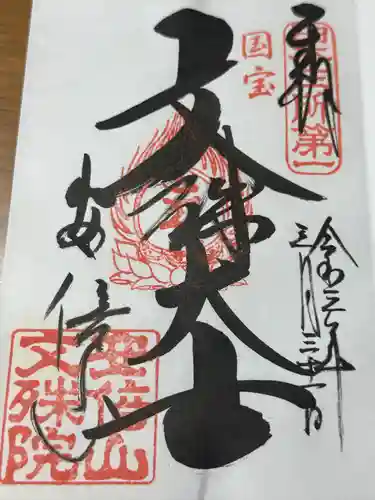 奉拝
第一
令和三年
三月三十一日
国宝
文殊大士
安倍山
安倍山
文殊院